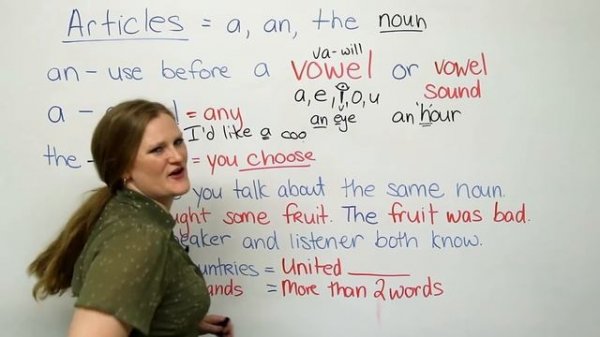 Articles = a, an, the noun
va-will
an - use before a vowel or vowel sound
a, e, i, o, u
an eye
an hour
a - = any
I'd like a coo
the - = you choose
you talk about the same noun.
ght some fruit. The fruit was bad.
eaker and listener both know.
untries = United ______
ands = More than 2 words